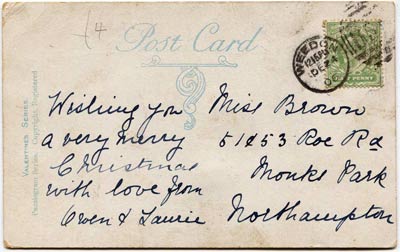 4
Post Card
WEEDON
DE
HALFPENNY
VALENTINES SERIES.
Copyright, Registered
Wishing you
a very merry
Christmas
with love from
Owen & Laurie
Miss Brown
51 & 53 Roe Rd
Monks Park
Northampton